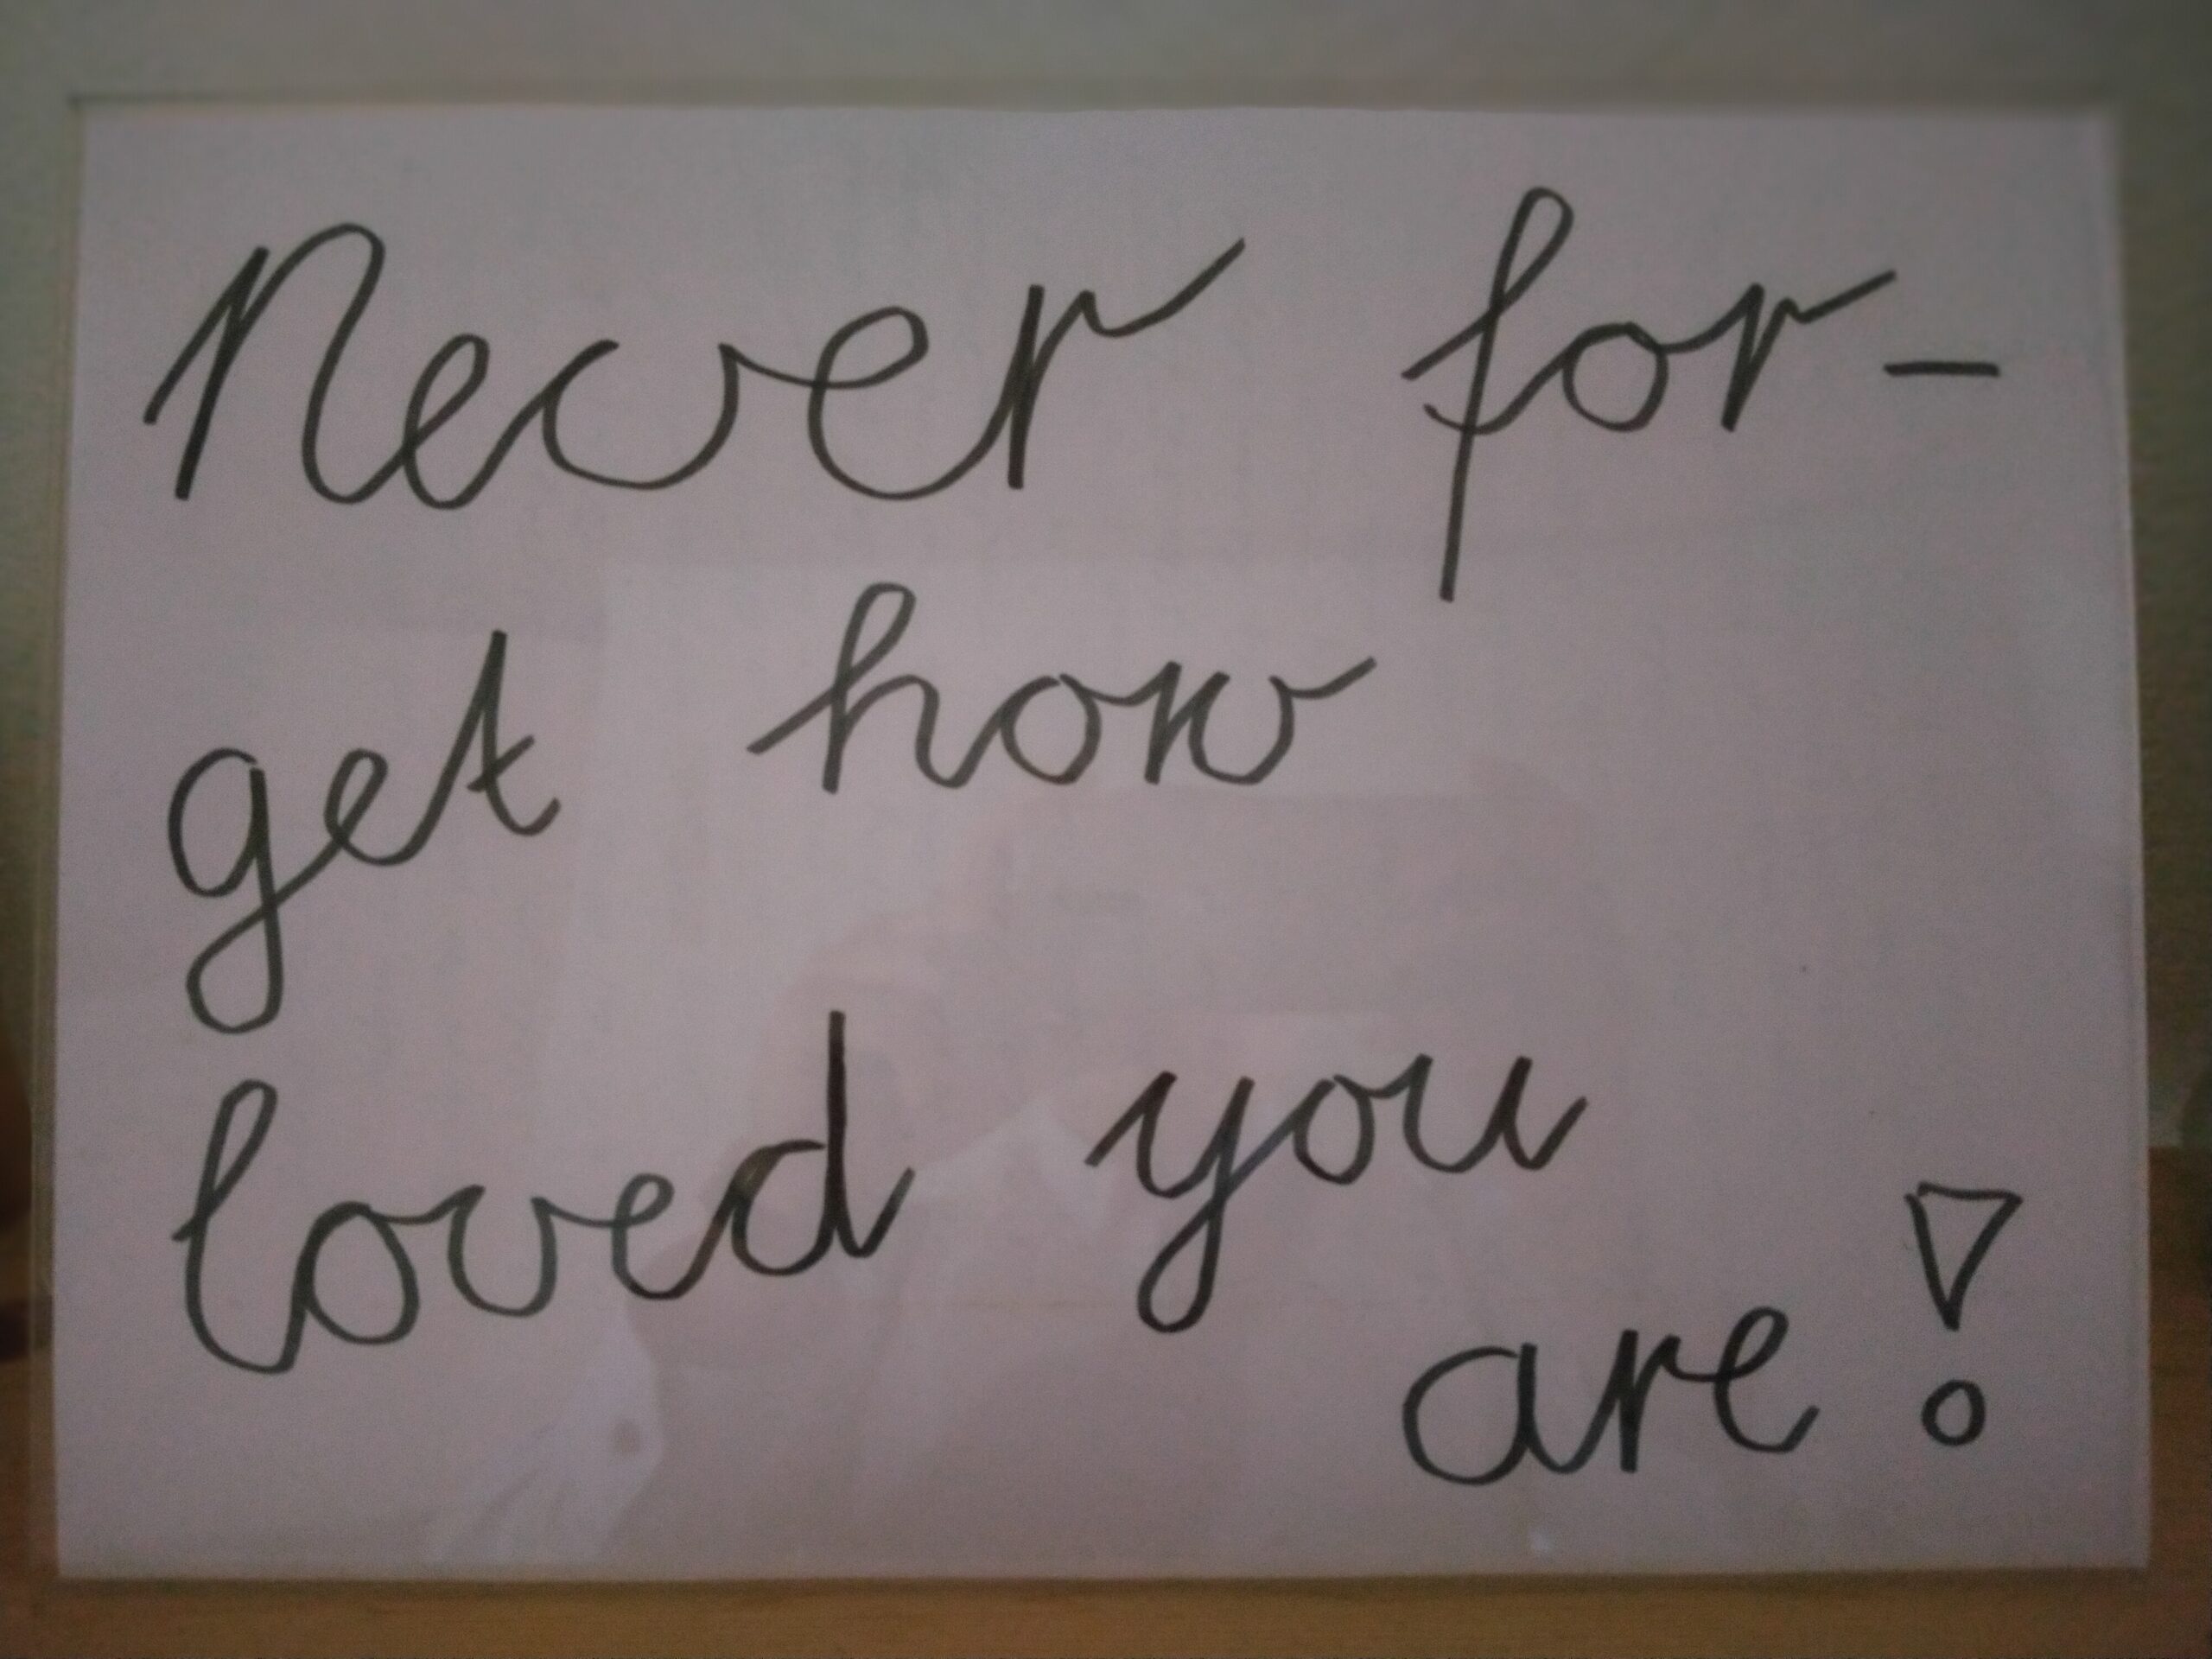 Never for-
get how
loved you
are!